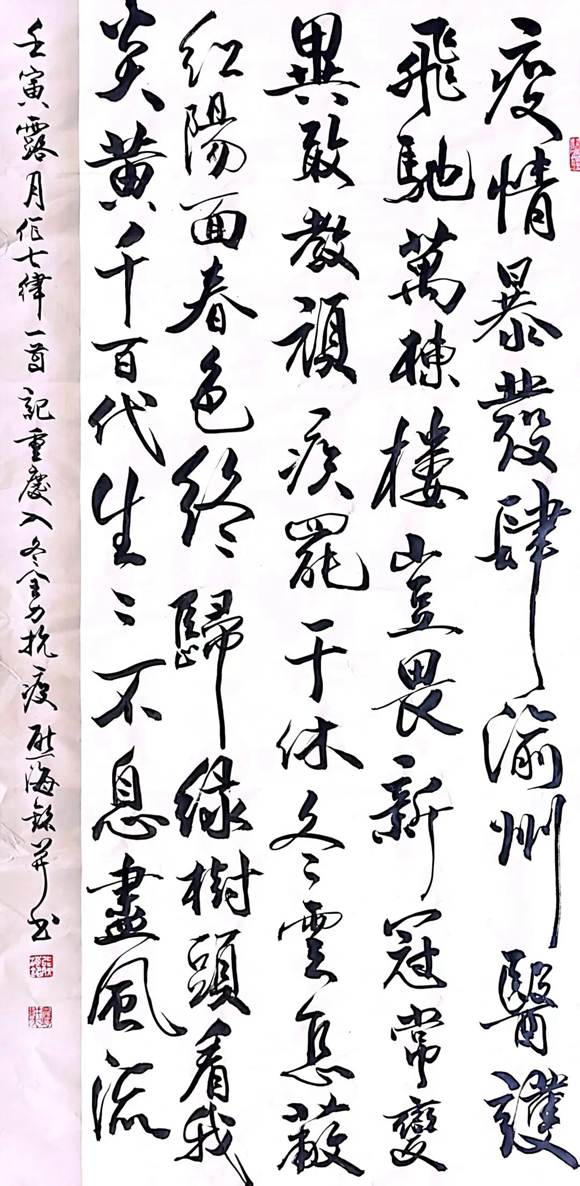 疫情暴發肆渝州醫護
飛馳萬棟樓豈畏新冠常變
異敢教頑疾罷干休冬雲怎蔽
紅陽面春色終歸綠樹頭看我
炎黃千百代生〻不息盡風流
壬寅露月作七律一首記重慶入冬全力抗疫 海銘并書